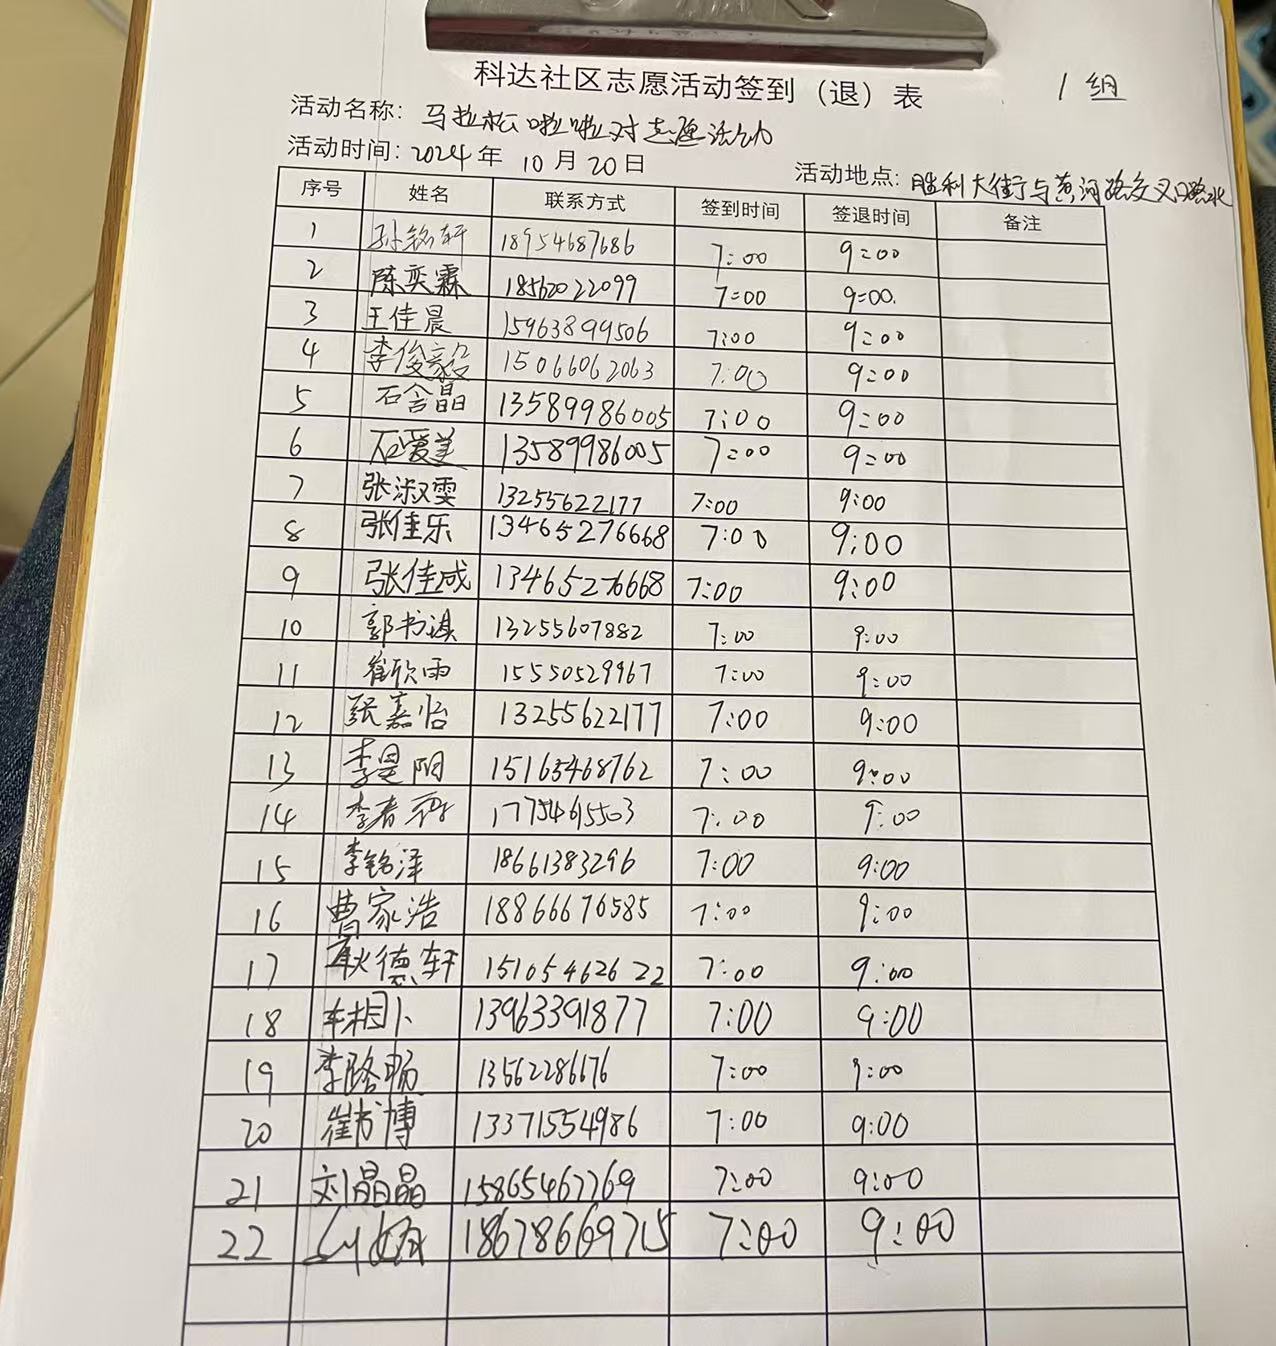 科达社区志愿活动签到（退）表
1组
活动名称：马拉松啦啦对志愿活动
活动时间：2024年10月20日
活动地点：胜利大街与黄河路交叉口路北
序号 姓名 联系方式 签到时间 签退时间 备注
1 孙铭轩 18954687686 7:00 9:00
2 陈奕霖 18562022099 7:00 9:00
3 王佳晨 15963899506 7:00 9:00
4 李俊毅 15066062063 7:00 9:00
5 石含晶 13589986005 7:00 9:00
6 石爱美 13589986005 7:00 9:00
7 张淑雯 13255622177 7:00 9:00
8 张佳乐 13465276668 7:00 9:00
9 张佳成 13465276668 7:00 9:00
10 郭书淇 13255607882 7:00 9:00
11 崔欣雨 15550529967 7:00 9:00
12 张嘉怡 13255622177 7:00 9:00
13 李昱阳 15165468762 7:00 9:00
14 李春 17754615503 7:00 9:00
15 李铭泽 18661383296 7:00 9:00
16 曹家浩 18866670585 7:00 9:00
17 耿德轩 15105462622 7:00 9:00
18 13963391877 7:00 9:00
19 李路畅 13562286676 7:00 9:00
20 崔书博 13371554986 7:00 9:00
21 刘晶晶 15865467769 7:00 9:00
22 18678669715 7:00 9:00